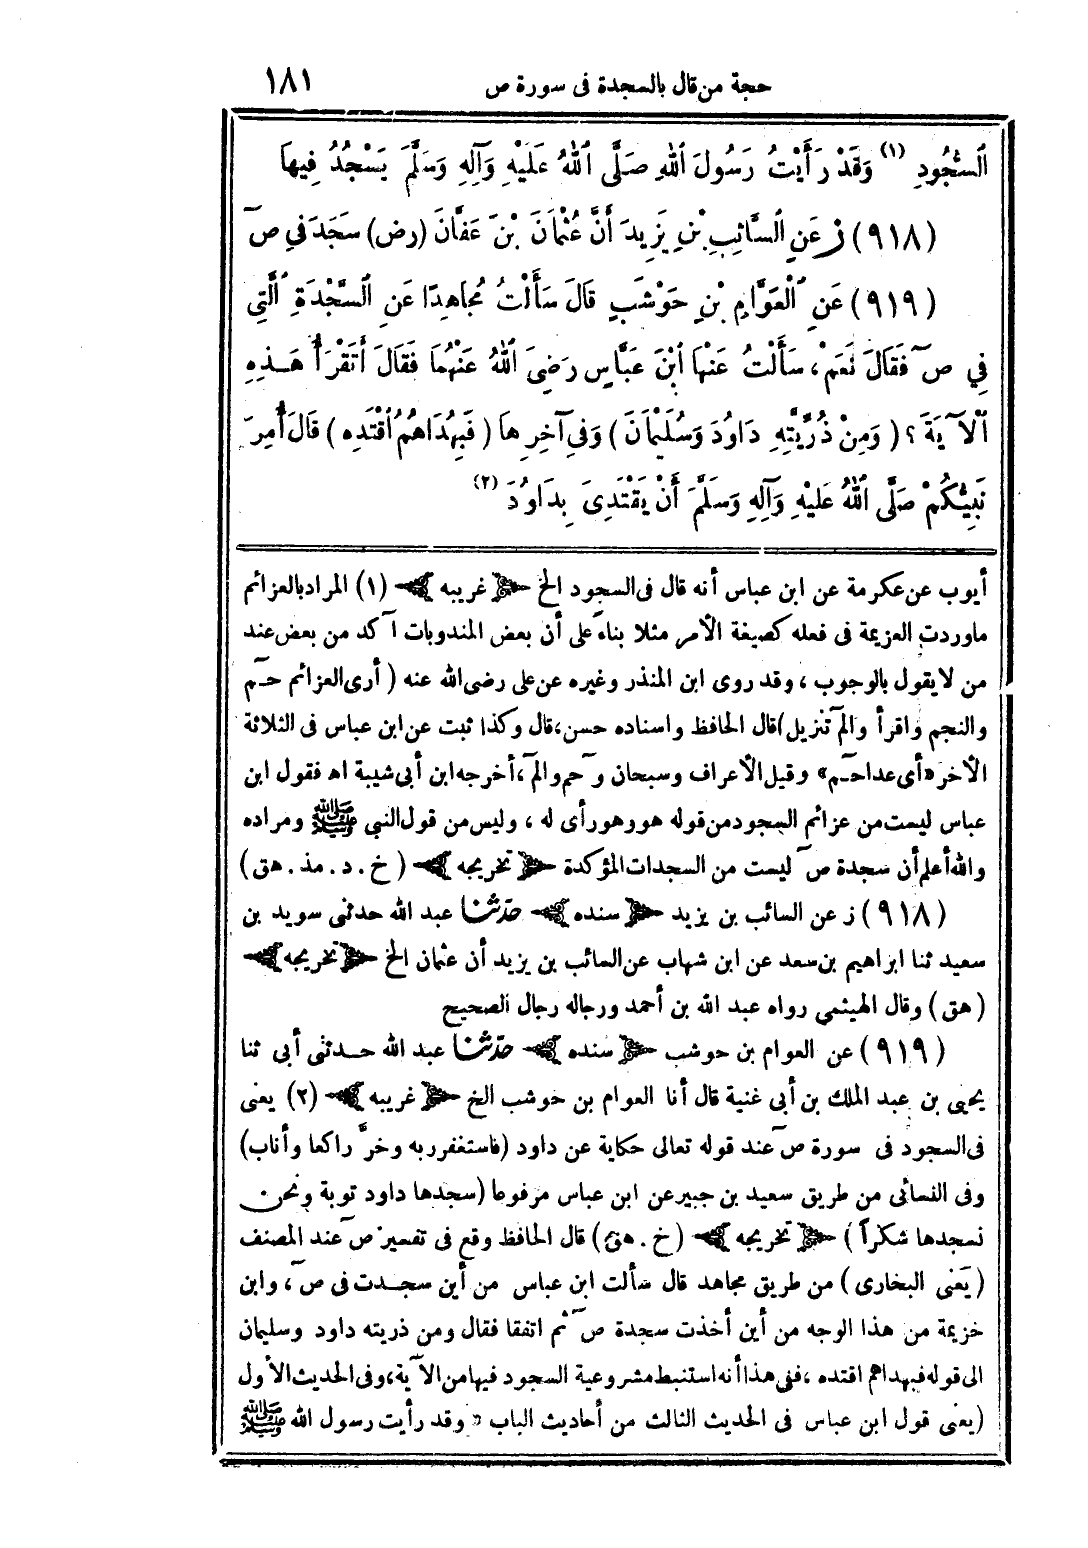 حجة من قال بالسجدة فى سورة ص ١٨١
ٱلسُّجُودِ (١) وَقَدْ رَأَيْتُ رَسُولَ ٱللهِ صَلَّى ٱللهُ عَلَيْهِ وَآلِهِ وَسَلَّمَ يَسْجُدُ فِيهَا
(٩١٨) ز عَنِ ٱلسَّائِبِ بْنِ يَزِيدَ أَنَّ عُثْمَانَ بْنَ عَفَّانَ (رض) سَجَدَ فِي صٓ
(٩١٩) عَنِ ٱلْعَوَّامِ بْنِ حَوْشَبٍ قَالَ سَأَلْتُ مُجَاهِدًا عَنِ ٱلسَّجْدَةِ ٱلَّتِي
فِي صٓ فَقَالَ نَعَمْ، سَأَلْتُ عَنْهَا ٱبْنَ عَبَّاسٍ رَضِىَ ٱللهُ عَنْهُمَا فَقَالَ أَتَقْرَأُ هَـذِهِ
ٱلْآيَةَ ؟ (وَمِنْ ذُرِّيَّتِهِ دَاوُدَ وَسُلَيْمَانَ) وَفِي آخِرِهَا (فَبِهُدَاهُمُ ٱقْتَدِه) قَالَ أُمِرَ
نَبِيُّكُمْ صَلَّى ٱللهُ عَلَيْهِ وَآلِهِ وَسَلَّمَ أَنْ يَقْتَدِىَ بِدَاوُدَ (٢)
أيوب عن عكرمة عن ابن عباس أنه قال فى السجود الخ ﴿غريبه﴾ (١) المراد بالعزائم
ماوردت العزيمة فى فعله كصيغة الأمر مثلا بناء على أن بعض المندوبات آكد من بعض عند
من لا يقول بالوجوب ، وقد روى ابن المنذر وغيره عن على رضى الله عنه (أرى العزائم حـٓم
والنجم واقرأ والٓم تنزيل) قال الحافظ واسناده حسن، قال وكذا ثبت عن ابن عباس فى الثلاثة
الأخر «أى عدا حـٓم» وقيل الأعراف وسبحان وحٓم والٓم، أخرجه ابن أبى شيبة اه فقول ابن
عباس ليست من عزائم السجود من قوله هو وهو رأى له ، وليس من قول النبى ﷺ ومراده
والله أعلم أن سجدة صٓ ليست من السجدات المؤكدة ﴿تخريجه﴾ (خ . د . مذ . هق)
(٩١٨) ز عن السائب بن يزيد ﴿سنده﴾ حدّثنا عبد الله حدثنى سويد بن
سعيد ثنا ابراهيم بن سعد عن ابن شهاب عن السائب بن يزيد أن عثمان الخ ﴿تخريجه﴾
(هق) وقال الهيثمي رواه عبد الله بن أحمد ورجاله رجال الصحيح
(٩١٩) عن العوام بن حوشب ﴿سنده﴾ حدّثنا عبد الله حـدثنى أبى ثنا
يحيى بن عبد الملك بن أبى غنية قال أنا العوام بن حوشب الخ ﴿غريبه﴾ (٢) يعنى
فى السجود فى سورة صٓ عند قوله تعالى حكاية عن داود (فاستغفر ربه وخرَّ راكعا وأناب)
وفى النسائى من طريق سعيد بن جبير عن ابن عباس مرفوعا (سجدها داود توبة ونحن
نسجدها شكراً) ﴿تخريجه﴾ (خ . هق) قال الحافظ وقع فى تفسير صٓ عند المصنف
(يعنى البخارى) من طريق مجاهد قال سألت ابن عباس من أين سجـدت فى صٓ، وابن
خزيمة من هذا الوجه من أين أخذت سجدة صٓ ثم اتفقا فقال ومن ذريته داود وسليمان
الى قوله فبهداهم اقتده ، فى هذا أنه استنبط مشروعية السجود فيها من الآية، وفى الحديث الأول
(يعنى قول ابن عباس فى الحديث الثالث من أحاديث الباب «وقد رأيت رسول الله ﷺ